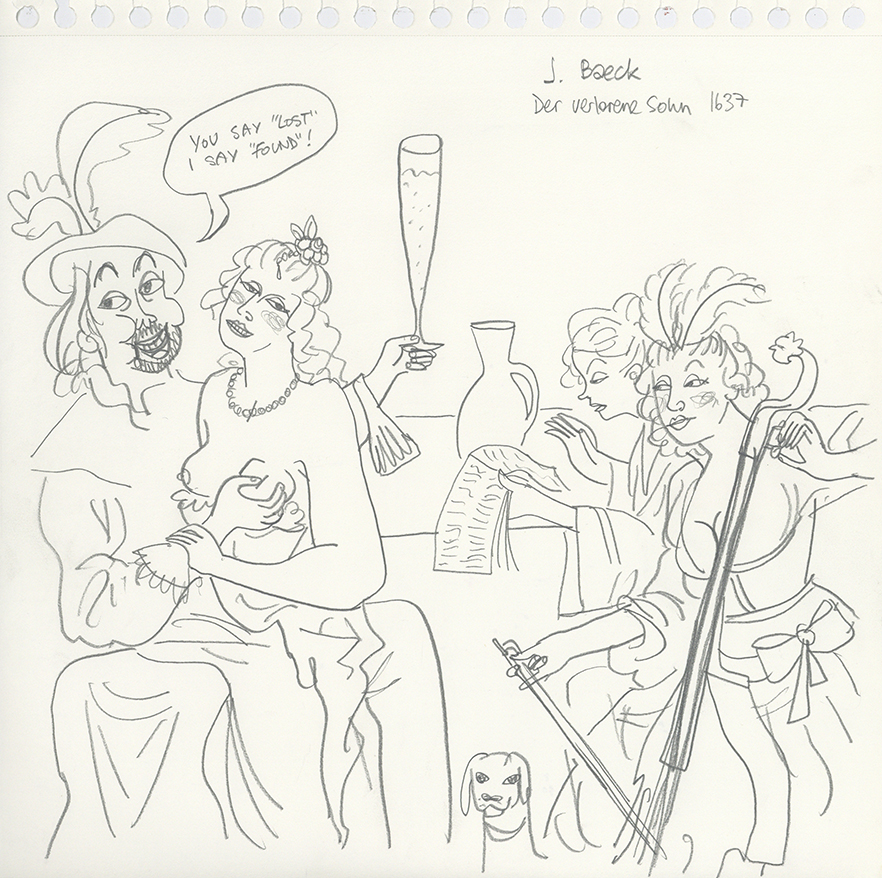 J. Baeck
Der verlorene Sohn 1637
YOU SAY "LOST"
I SAY "FOUND"!